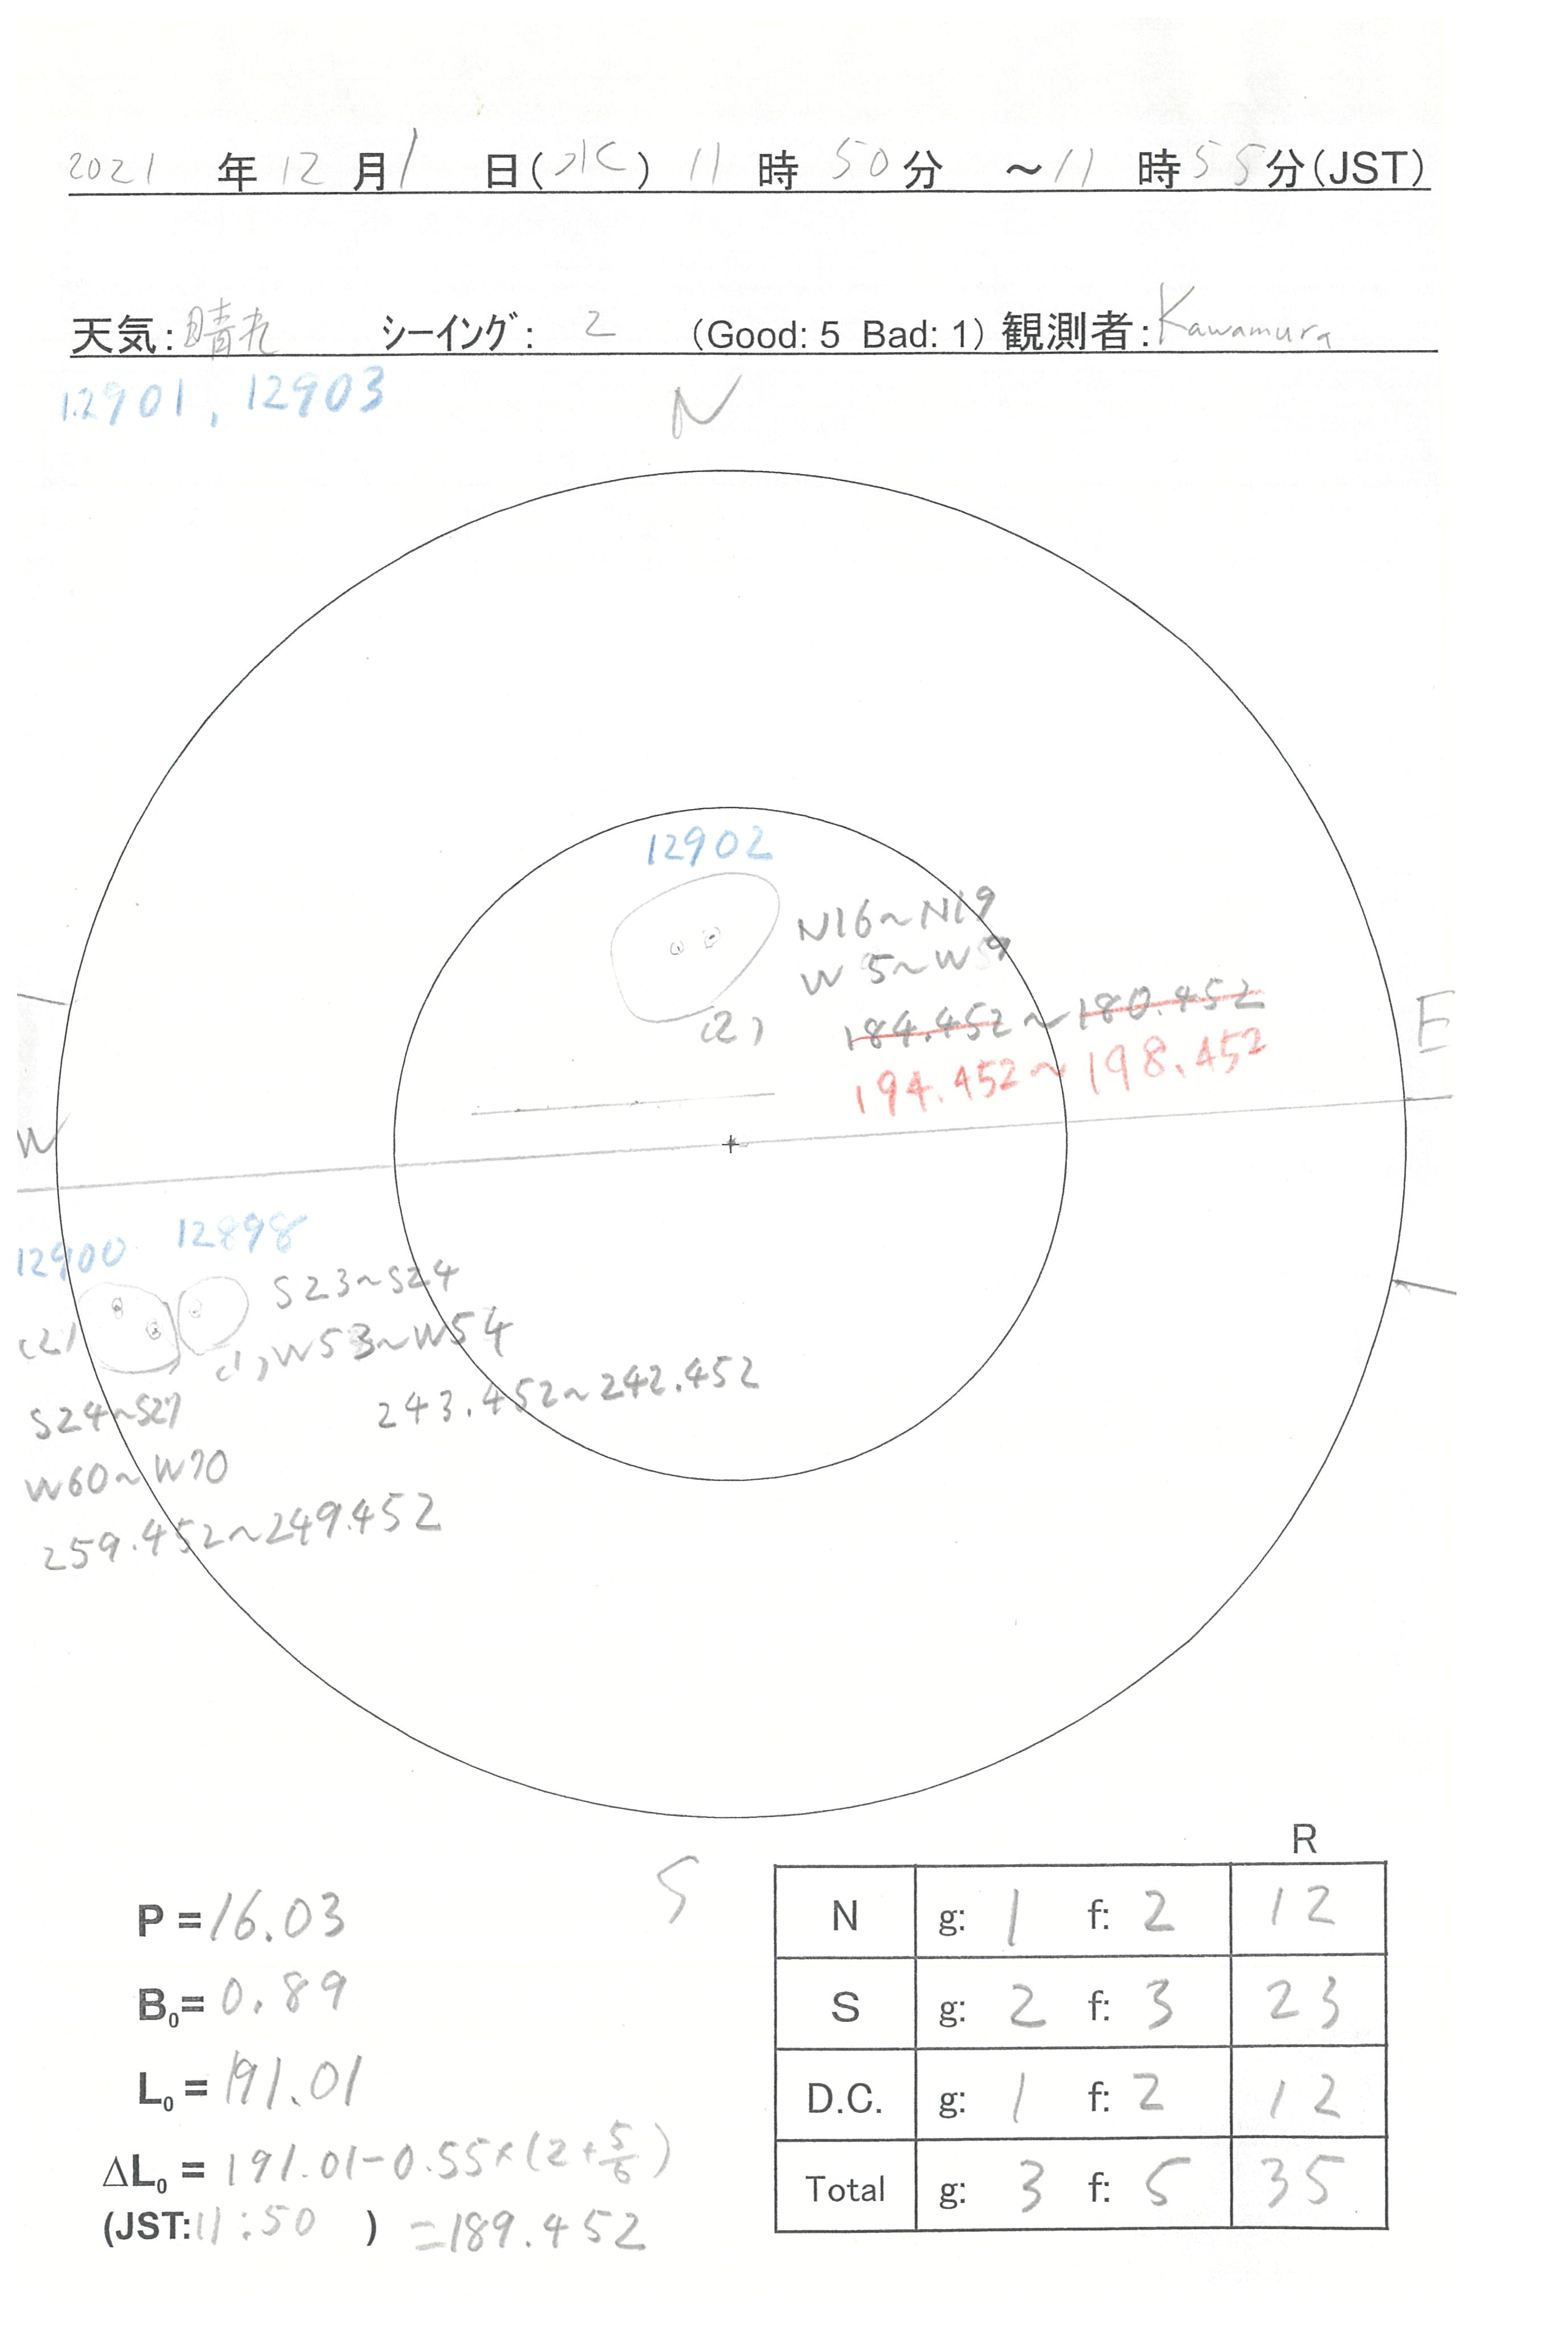 2021 年 12 月 1 日(水) 11 時 50 分 ～11 時 55 分(JST)
天気: 晴れ ｼｰｲﾝｸﾞ: 2 (Good: 5 Bad: 1) 観測者: Kawamura
12901, 12903
N
12902
N16~N19
W5~W9
(2)
184.452~180.452
194.452~198.452
E
W
12900 12898
S23~S24
(2) (1) W53~W54
243.452~242.452
S24~S27
W60~W70
259.452~249.452
S
R
P = 16.03
N g: 1 f: 2 12
B₀ = 0.89
S g: 2 f: 3 23
L₀ = 191.01
D.C. g: 1 f: 2 12
ΔL₀ = 191.01-0.55×(2+5/6)
Total g: 3 f: 5 35
(JST: 11:50 ) =189.452